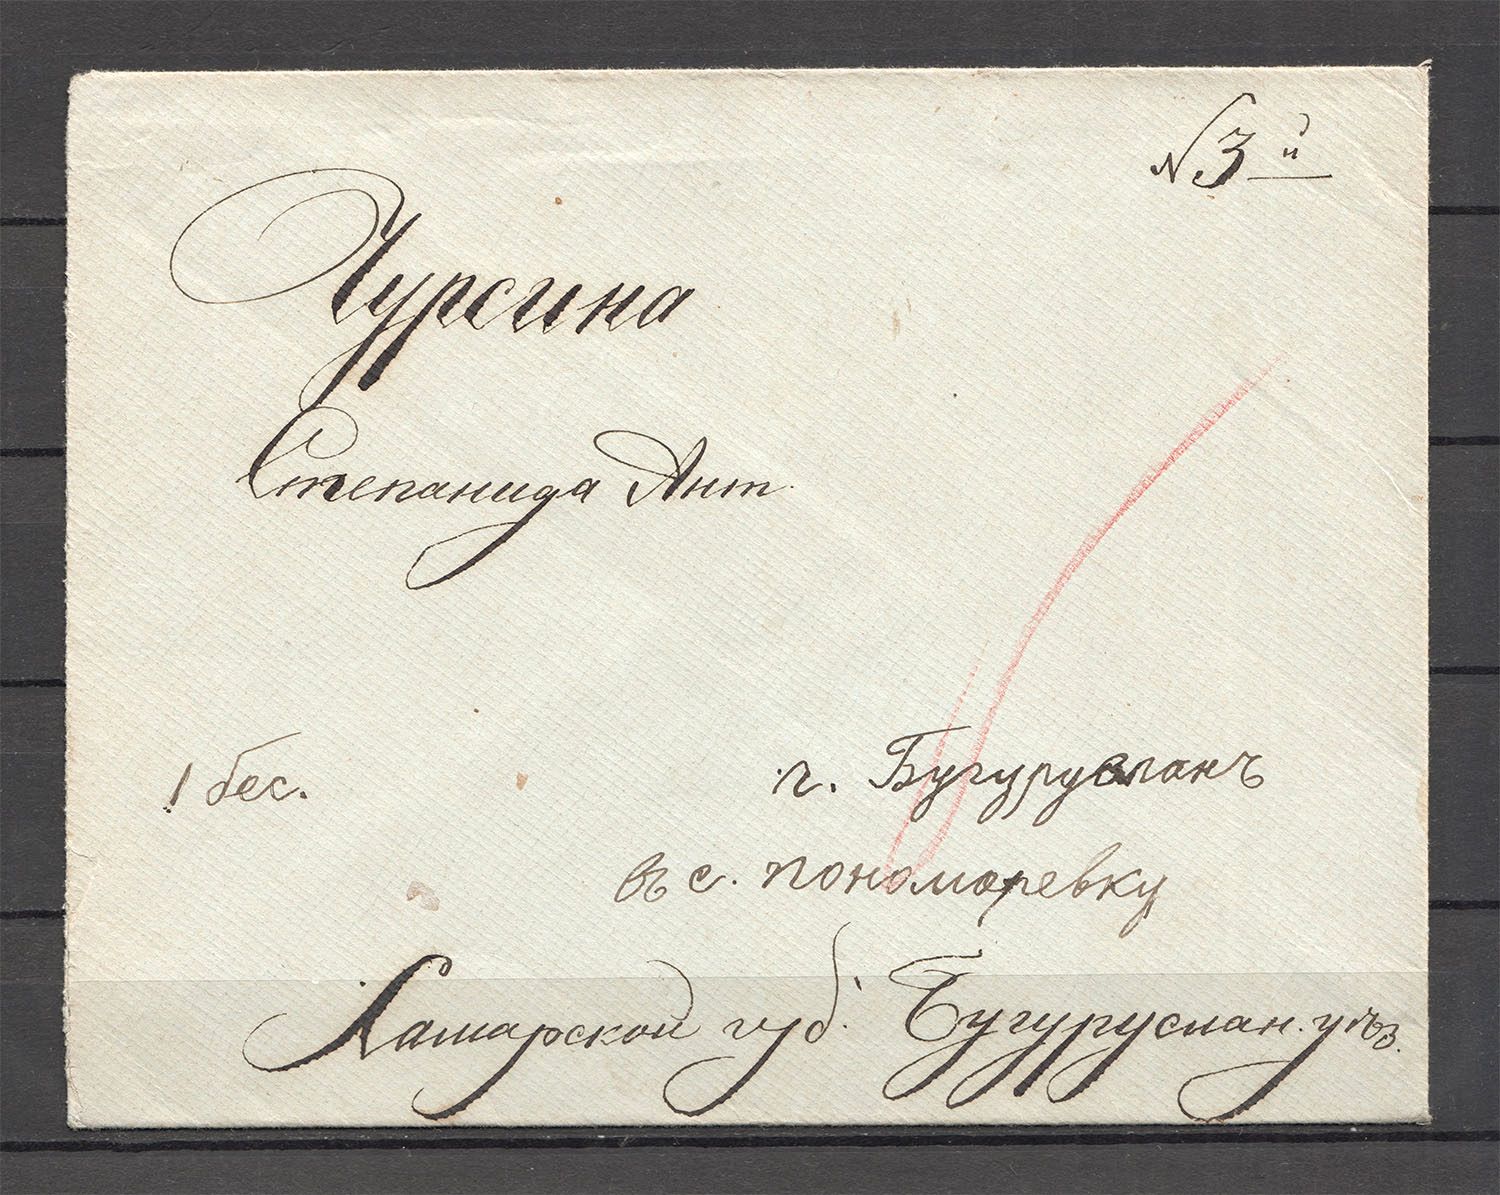 N 3й
Чурсина
Степанида Ант.
1 бес.
г. Бугурусланъ
въ с. Пономаревку
Самарской губ. Бугуруслан. уѣз.